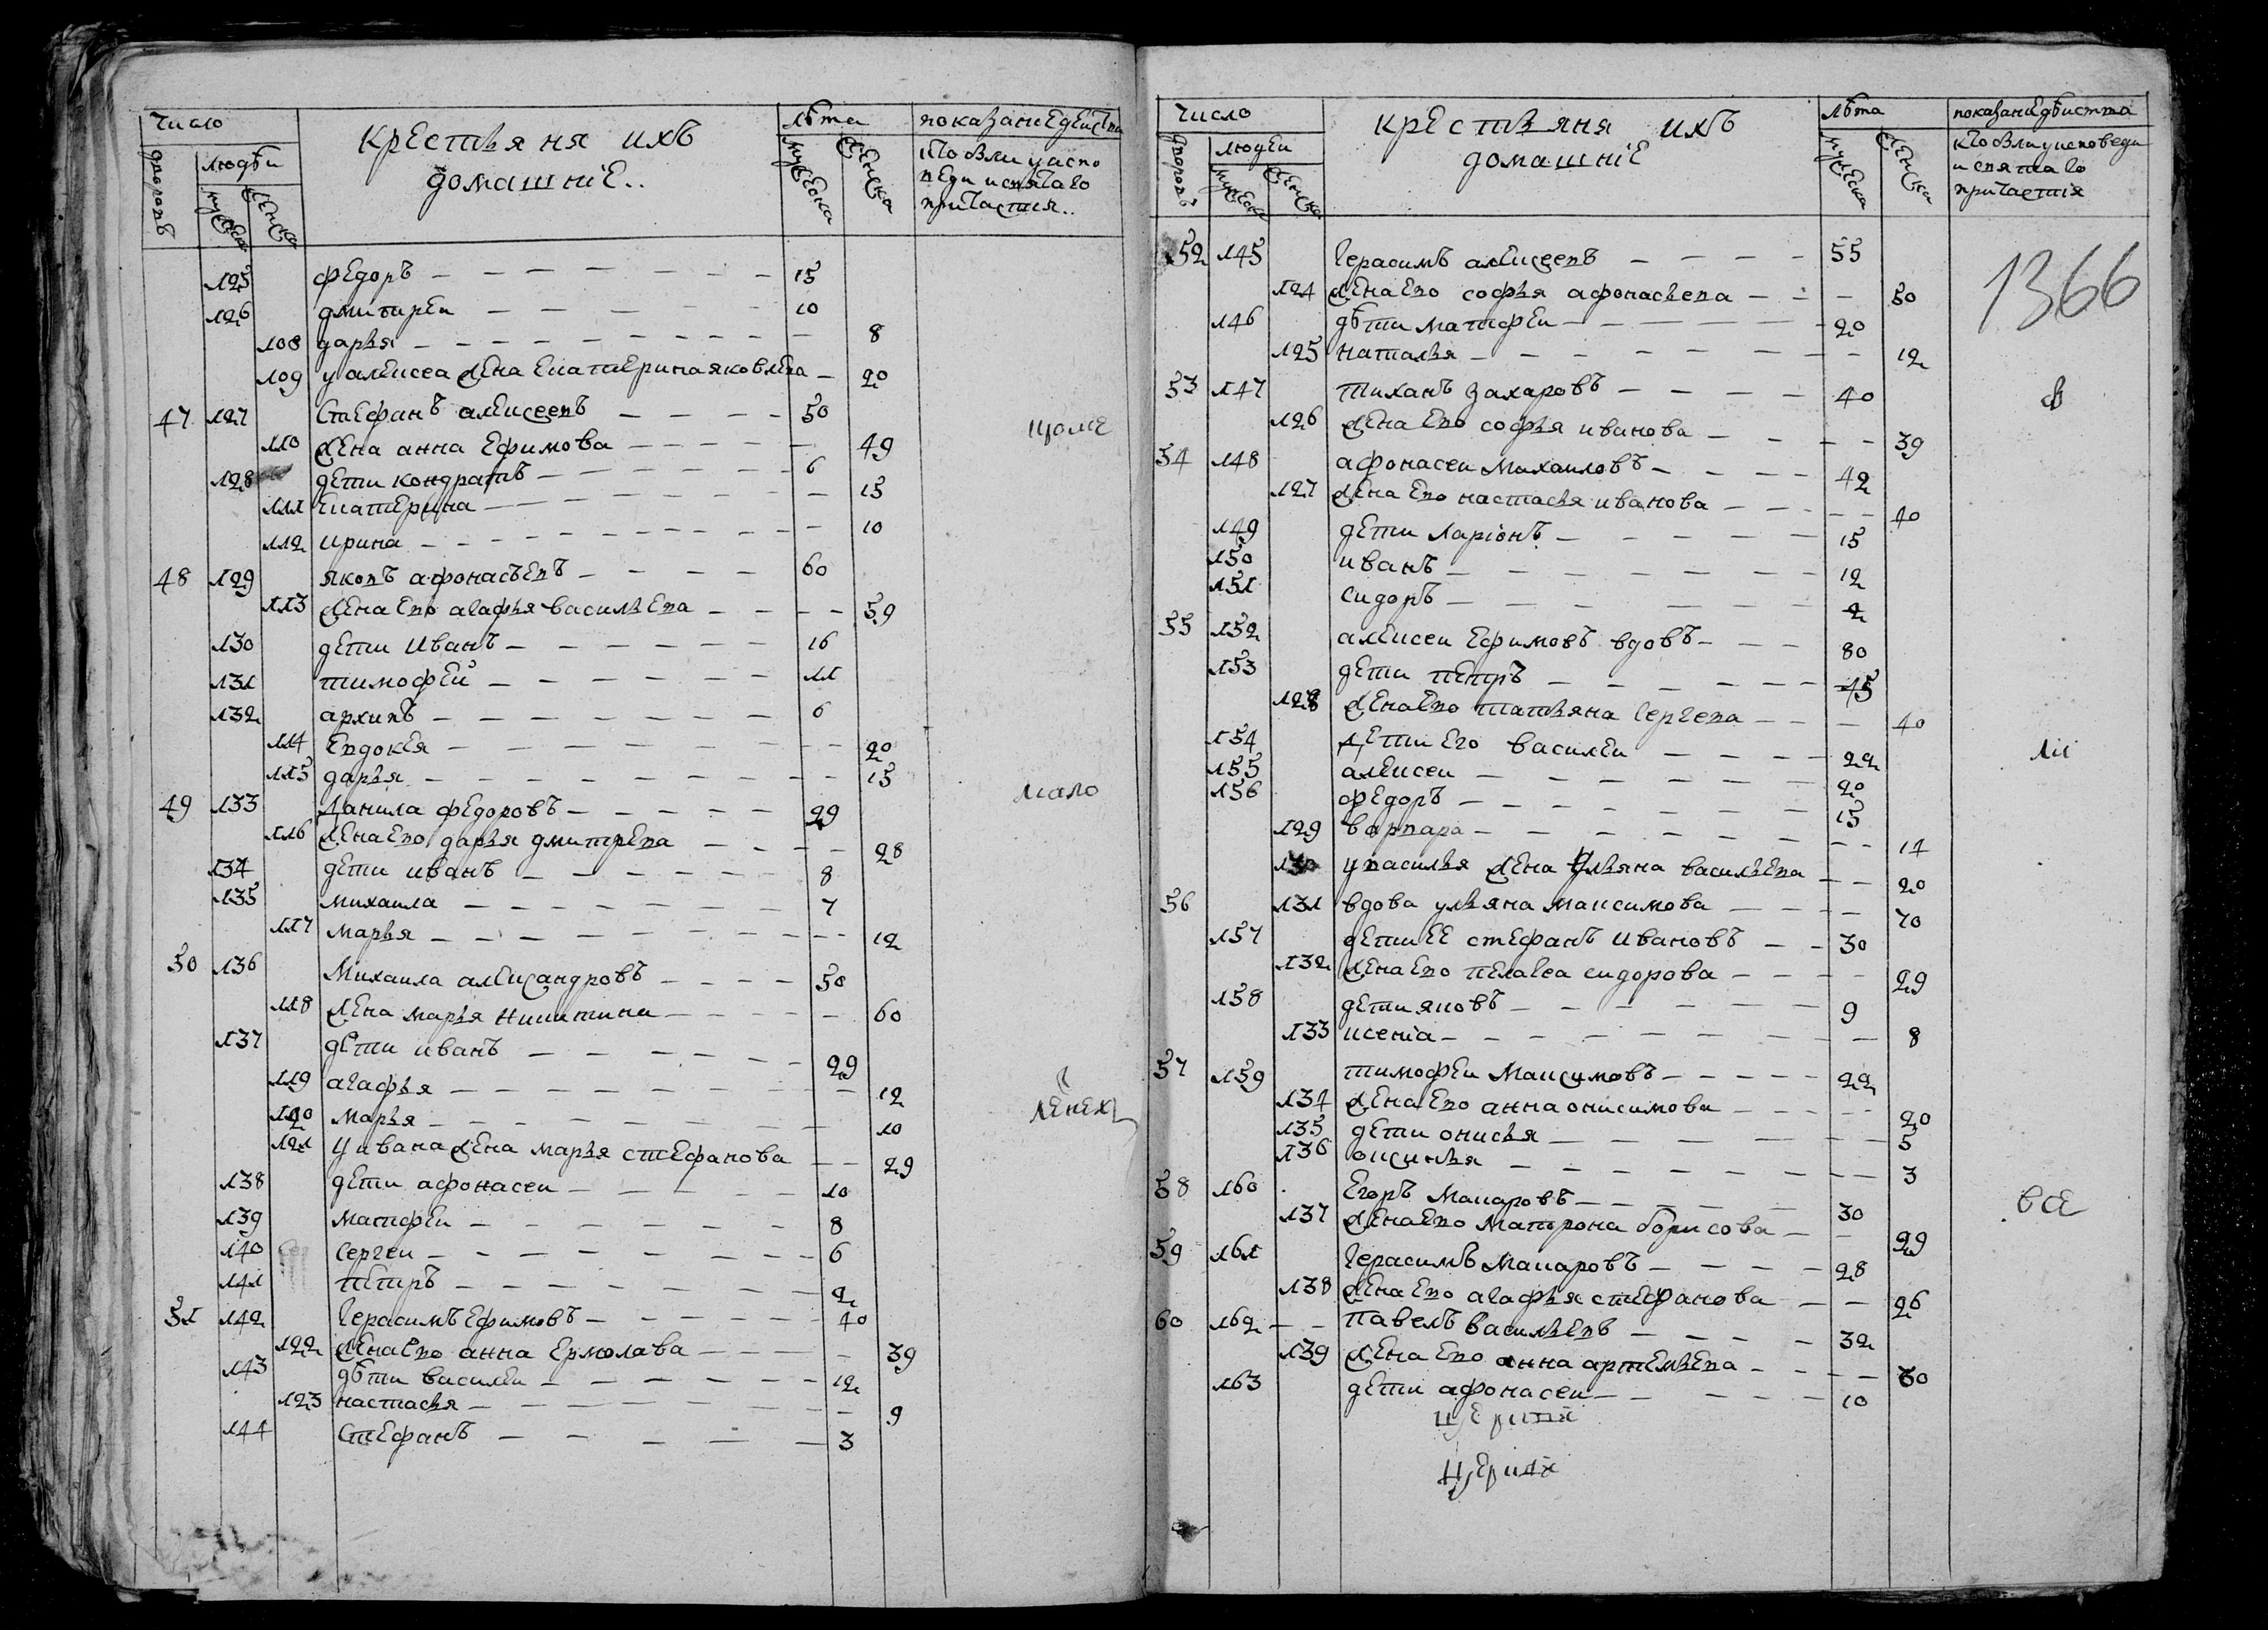 Число
дворовъ
людѣи
мужеска
женска
крестьяня ихъ
домашніе..
лѣта
мужеска
женска
показание деиства
кто были у испо
веди и святаго
причастия..
125 федоръ 15
126 дмитреи 10
108 дарья 8
109 у алексеа жена екатерина яковлева 20
47 127 Стефанъ алексеевъ 50
110 жена анна ефимова 49
128 дети кондратъ 6
111 екатерина 15
112 ирина 10
48 129 яковъ афонасьевъ 60
113 жена ево агафья васильева 59
130 дети Иванъ 16
131 тимофеи 11
132 архипъ 6
114 евдокея 20
115 дарья 15
49 133 Данила федоровъ 29
116 жена ево дарья дмитрева 28
134 дети иванъ 8
135 михаила 7
117 марья 12
50 136 Михаила александровъ 50
118 жена марья никитина 60
137 дети иванъ 29
119 агафья 12
120 марья 10
121 у ивана жена марья стефанова 29
138 дети афонасеи 10
139 матфеи 8
140 Сергеи 6
141 петръ 2
51 142 Герасимъ ефимовъ 40
122 жена ево анна ермолава 39
143 дѣти василеи 12
123 настасья 9
144 Стефанъ 3
мало
Число
дворовъ
людеи
мужеска
женска
крестьяня ихъ
домашніе
лѣта
мужеска
женска
показание дѣиства
кто были у исповеди
и святаго
причастія
1366
52 145 Герасимъ алексеевъ 55
124 жена ево софья афонасьева 50
146 дѣти матфеи 20
125 наталья 12
53 147 тиханъ захаровъ 40
126 жена ево софья иванова 39
54 148 афонасеи михаиловъ 42
127 жена ево настасья иванова 40
149 дети ларіонъ 15
150 иванъ 12
151 сидоръ 2
55 152 алексеи ефимовъ вдовъ 80
153 дети петръ 45
128 жена ево татьяна сергева 40
154 дети его василеи 22
155 алексеи 20
156 федоръ 15
129 варвара 14
130 у василья жена ульяна васильева 20
56 131 вдова ульяна максимова 70
157 дети ее стефанъ ивановъ 30
132 жена ево пелагеа сидорова 29
158 дети яковъ 9
133 ксеніа 8
57 159 тимофеи максимовъ 22
134 жена ево анна онисимова 20
135 дети онисья 5
136 оксинья 3
58 160 Егоръ макаровъ 30
137 жена ево матрона борисова 29
59 161 Герасимъ макаровъ 28
138 жена ево агафья стефанова 26
60 162 павелъ васильевъ 32
139 жена ево анна артемьева 30
163 дети афонасеи 10